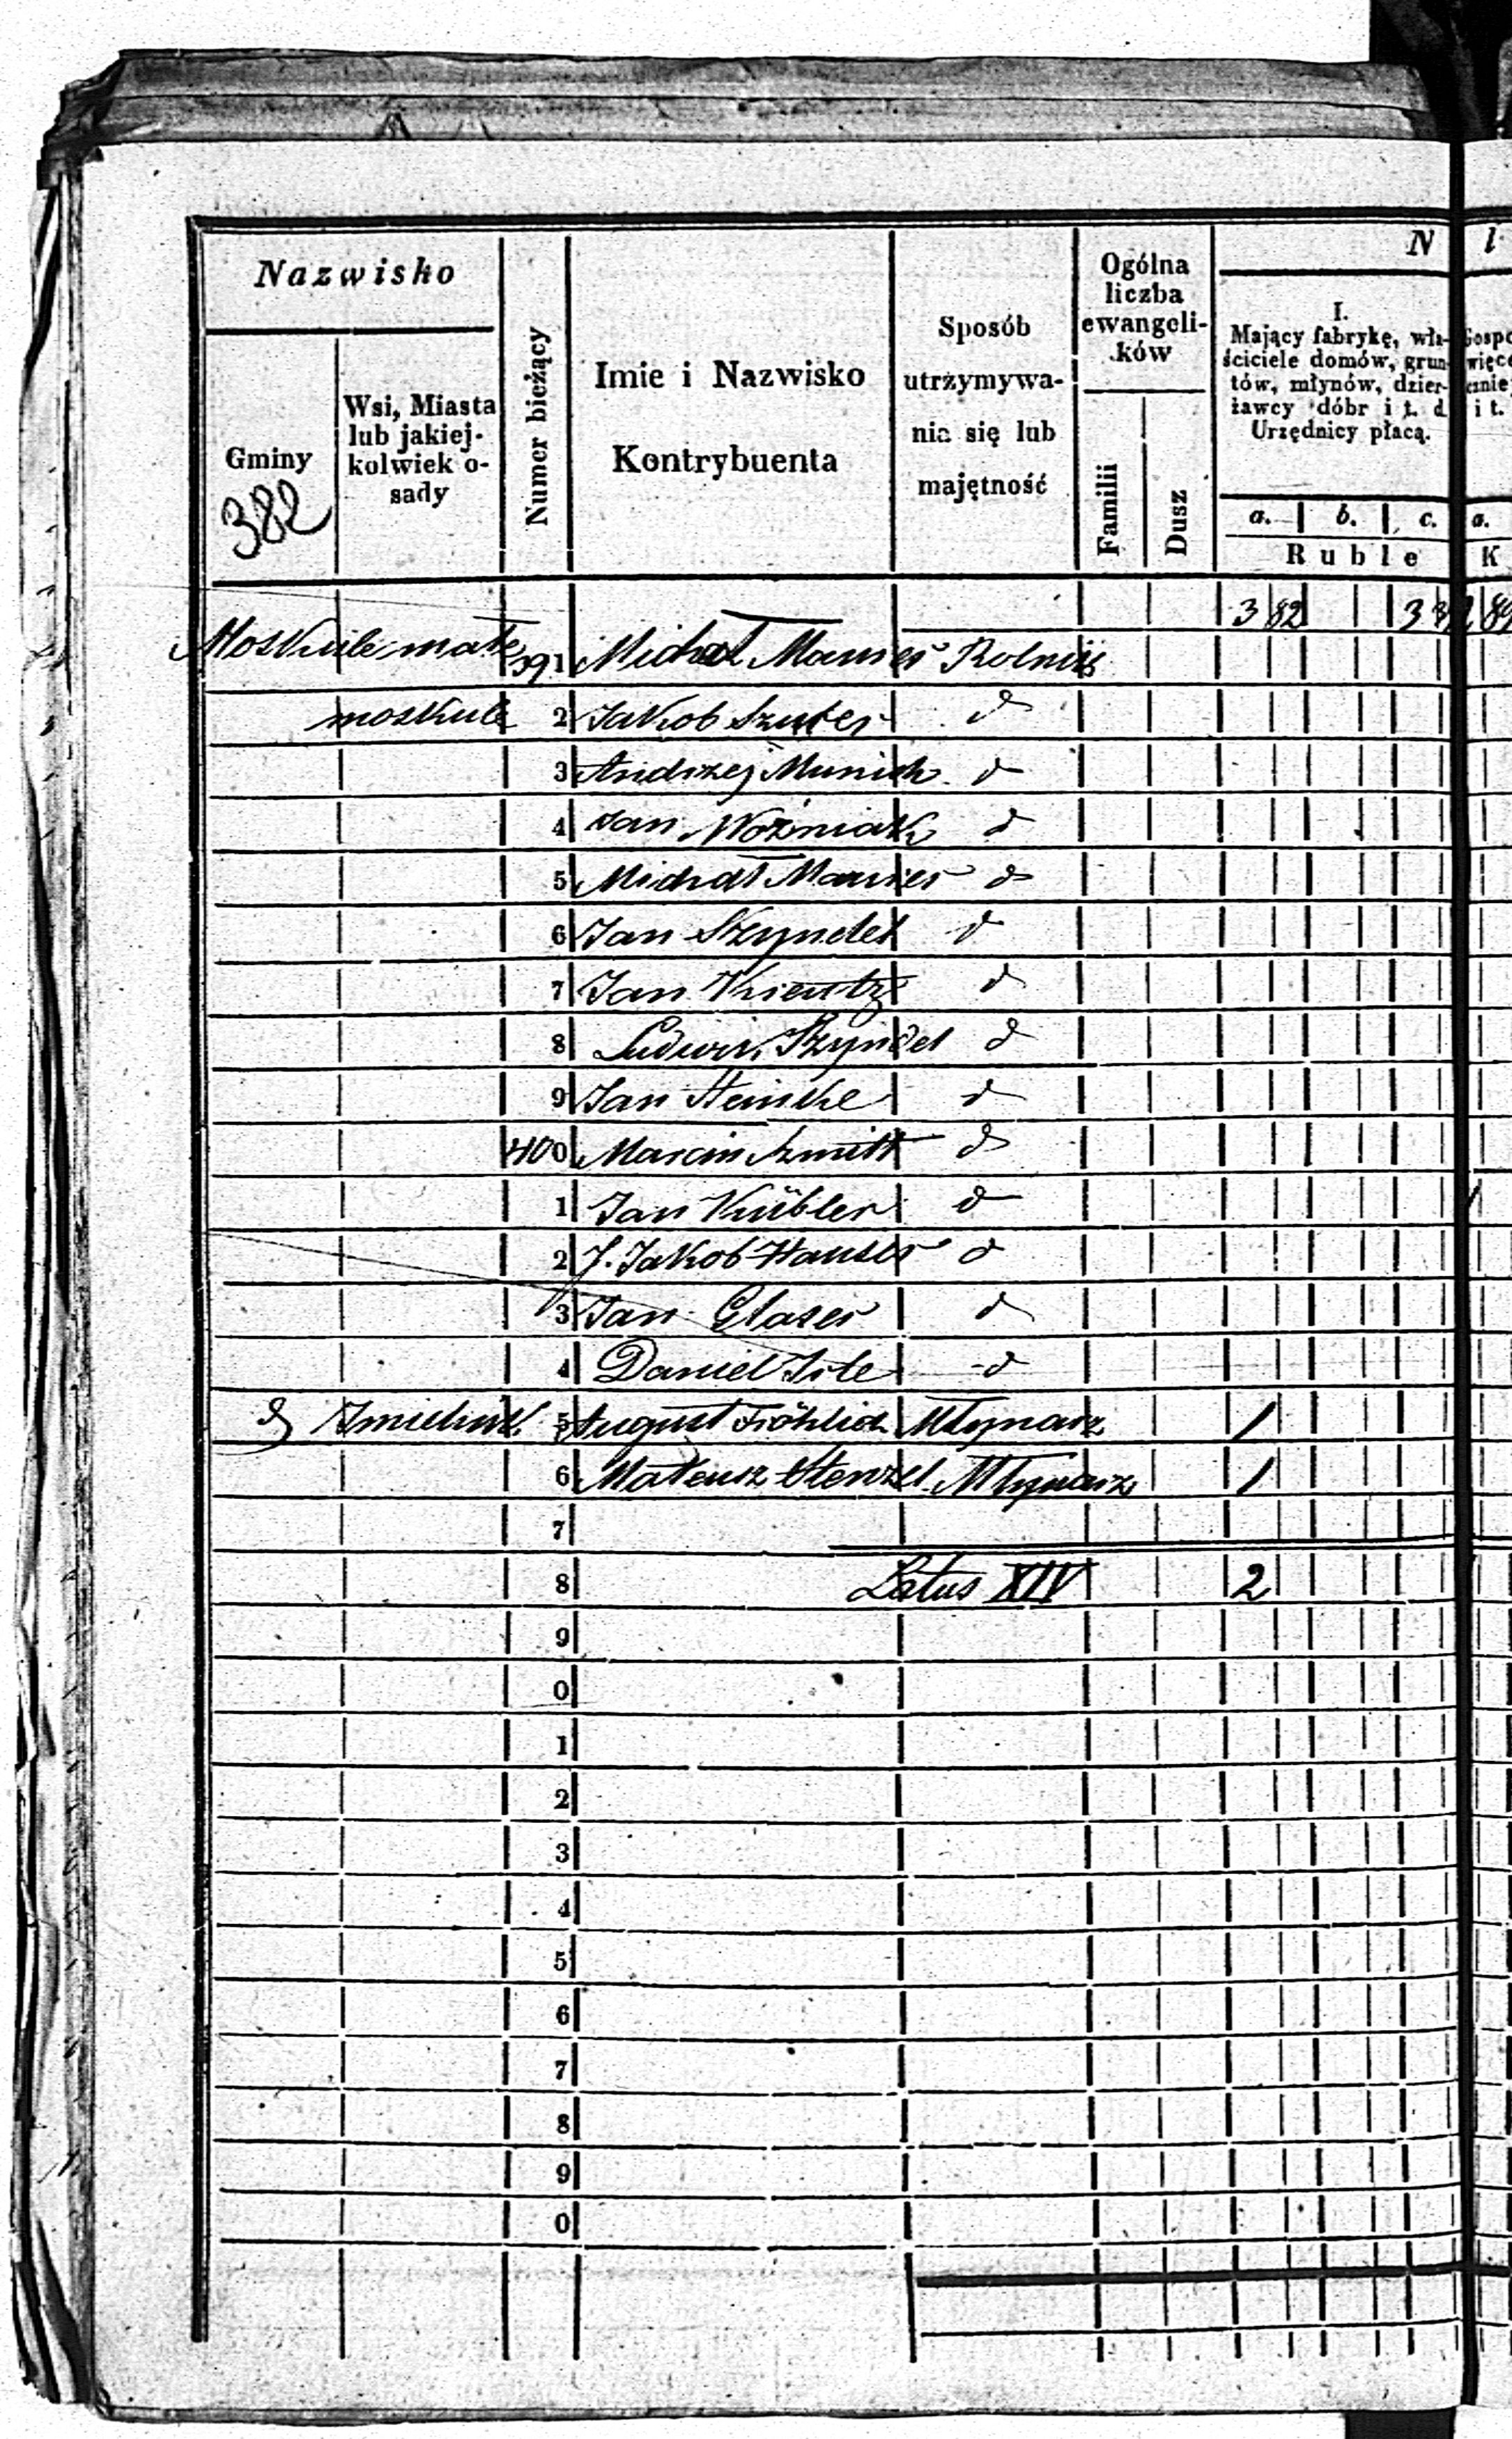 Nazwisko
Gminy
382
Wsi, Miasta
lub jakiej-
kolwiek o-
sady
Numer bieżący
Imie i Nazwisko
Kontrybuenta
Sposób
utrzymywa-
nia się lub
majętność
Ogólna
liczba
ewangeli-
ków
Familii
Dusz
N
I.
Mający fabrykę, wła-
ściciele domów, grun-
tów, młynów, dzier-
żawcy dóbr i t. d.
Urzędnicy płacą.
a. b. c. a.
Ruble K
3 82
Moskule małe 391 Michał Maurer Rolnik
moskule 2 Jakob Szuter d
3 Andrzej Munich d
4 Jan Woźniak d
5 Michał Maurer d
6 Jan Szyndel d
7 Jan Krentz d
8 Ludwik Szyndel d
9 Jan Heinike d
400 Marcin Szmitt d
1 Jan Kübler d
2 J. Jakob Hauser d
3 Jan Glaser d
4 Daniel Irle d
d 5 August Fröhlich Młynarz 1
6 Mateusz Stenzel Młynarz 1
7
8 Latus XIV 2
9
0
1
2
3
4
5
6
7
8
9
0